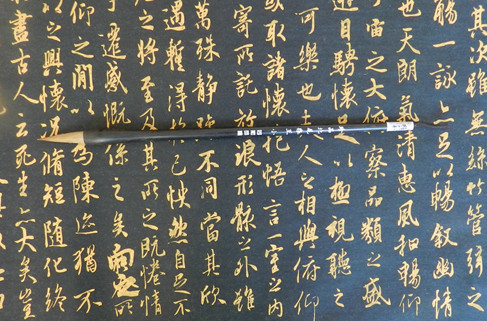 其次絲竹管弦之
觴一詠亦足以暢敘幽情
也天朗氣清惠風和暢仰
宙之大俯察品類之盛
遊目騁懷足以極視聽之
可樂也夫人之相與俯仰
或取諸懷悟言一室之內
寄所託放浪形骸之外雖
萬殊靜不同當其欣
遇暫得於己快然自足不
之將至及其所之既倦情
遷感慨係之矣向之所
仰之間以為陳迹猶不
以之興懷況脩短隨化終
盡古人云死生亦大矣豈